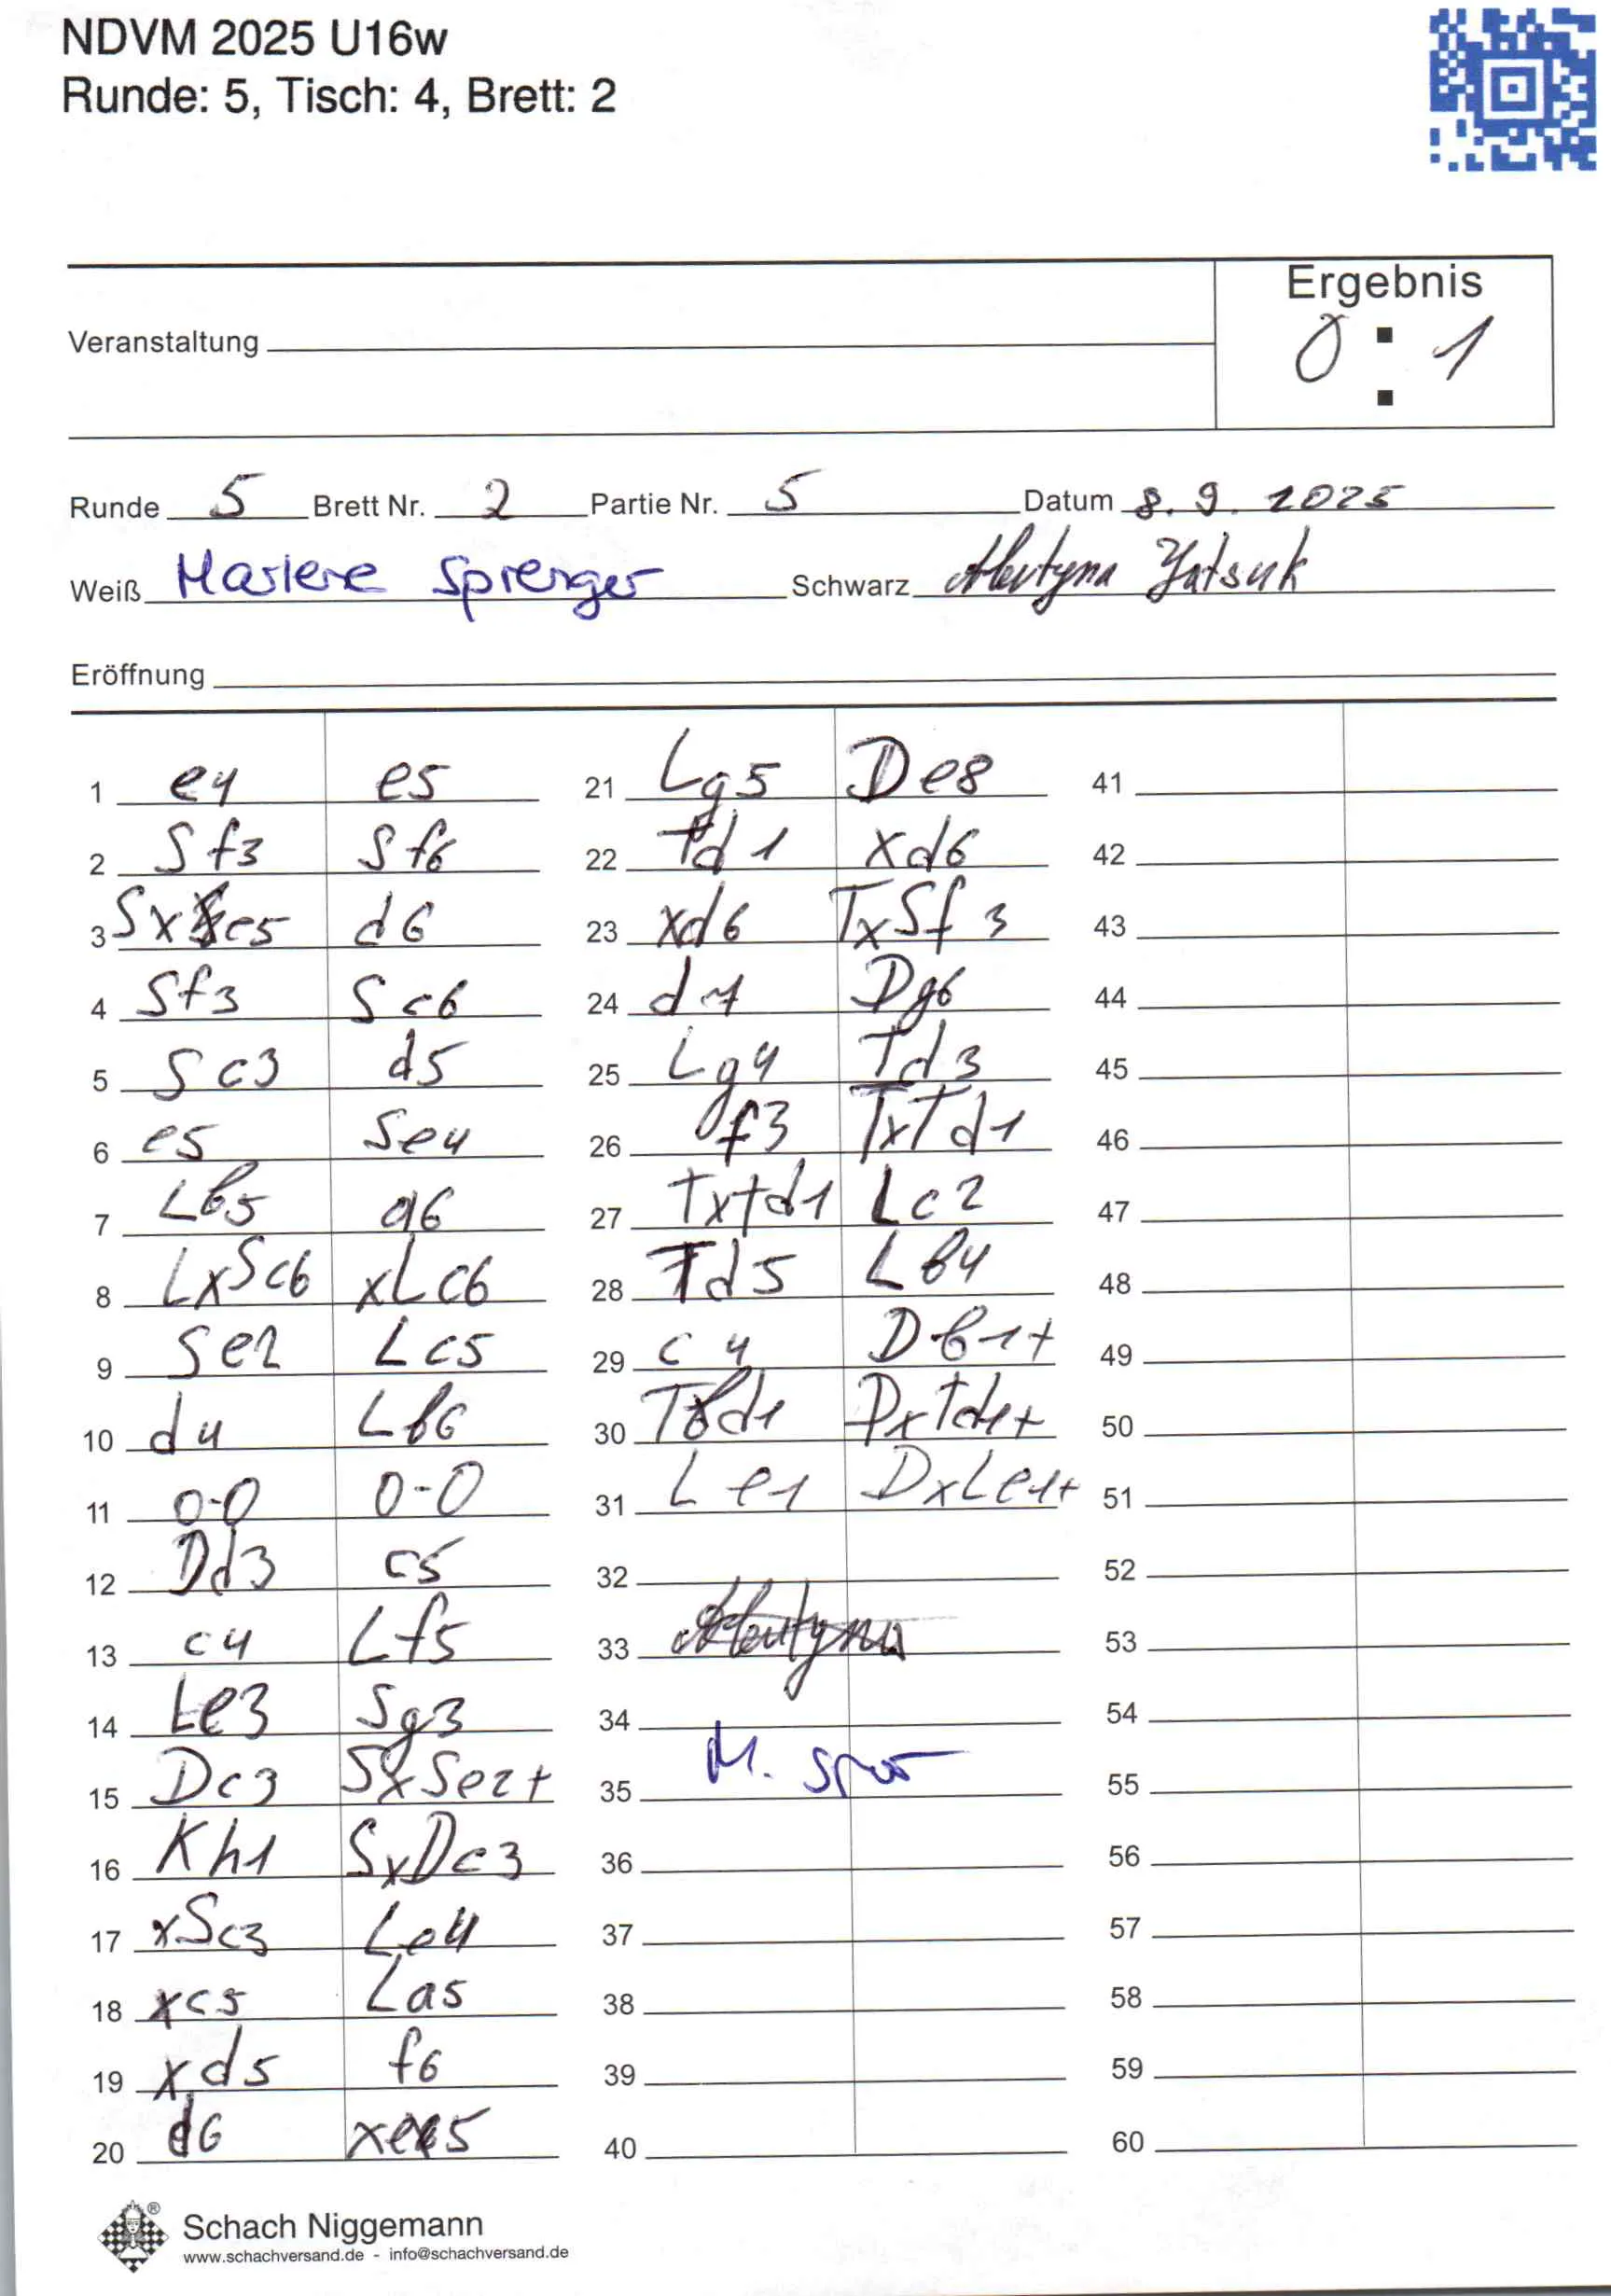 NDVM 2025 U16w
Runde: 5, Tisch: 4, Brett: 2
Ergebnis
0 : 1
Veranstaltung
Runde 5 Brett Nr. 2 Partie Nr. 5 Datum 8.9.2025
Weiß Marlene Sprenger Schwarz Yatsuk
Eröffnung
1 e4 e5
2 Sf3 Sf6
3 Sxe5 d6
4 Sf3 Sc6
5 Sc3 d5
6 e5 Se4
7 Lb5 a6
8 LxSc6 xLc6
9 Se2 Lc5
10 d4 Lb6
11 0-0 0-0
12 Dd3 c5
13 c4 Lf5
14 Le3 Sg3
15 Dc3 SxSe2+
16 Kh1 SxDc3
17 xSc3 Le4
18 xc5 La5
19 xd5 f6
20 d6 xe5
21 Lg5 De8
22 Td1 xd6
23 xd6 TxSf3
24 d7 Dg6
25 Lg4 Td3
26 f3 TxTd1
27 TxTd1 Lc2
28 Td5 Lb4
29 c4 Db1+
30 Td1 DxTd1+
31 Le1 DxLe1+
32
33
34
35 M.
36
37
38
39
40
41
42
43
44
45
46
47
48
49
50
51
52
53
54
55
56
57
58
59
60
Schach Niggemann
www.schachversand.de - info@schachversand.de